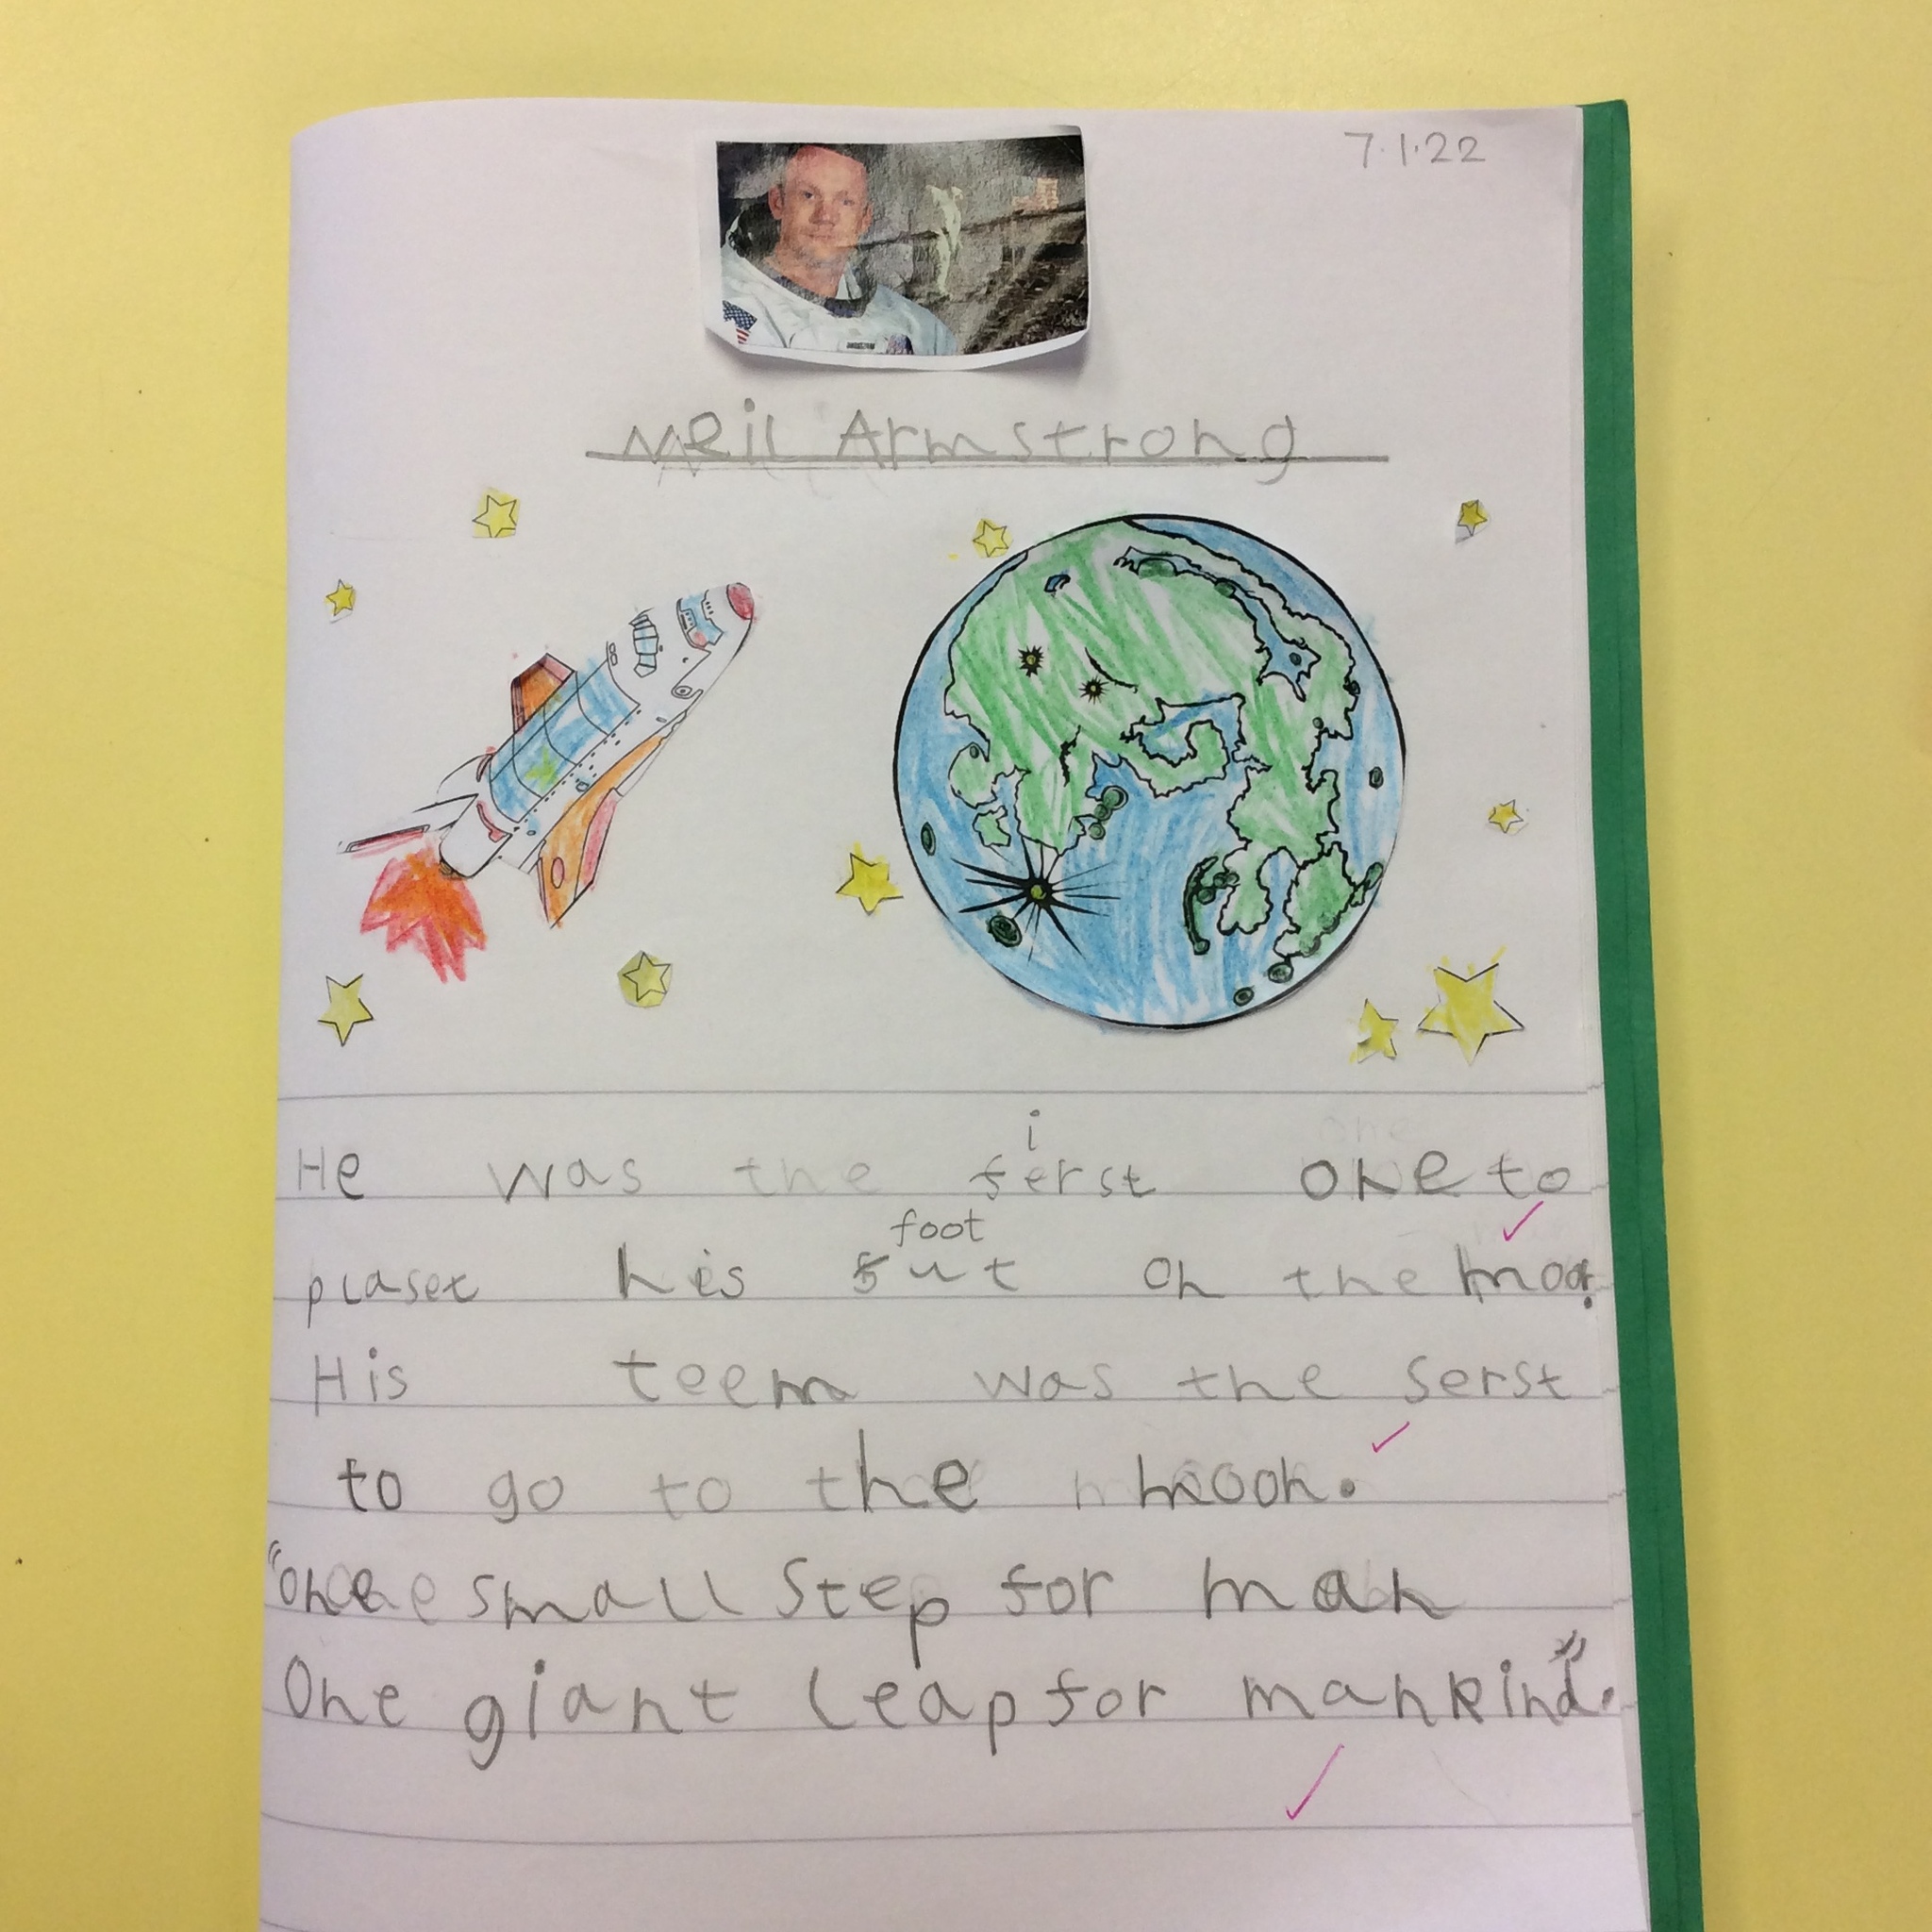 7.1.22
Neil Armstrong
i
He was the ferst one to
foot
plaset his fut on the moon.
His teem was the serst
to go to the moon.
"one small step for man
One giant leap for mankind".